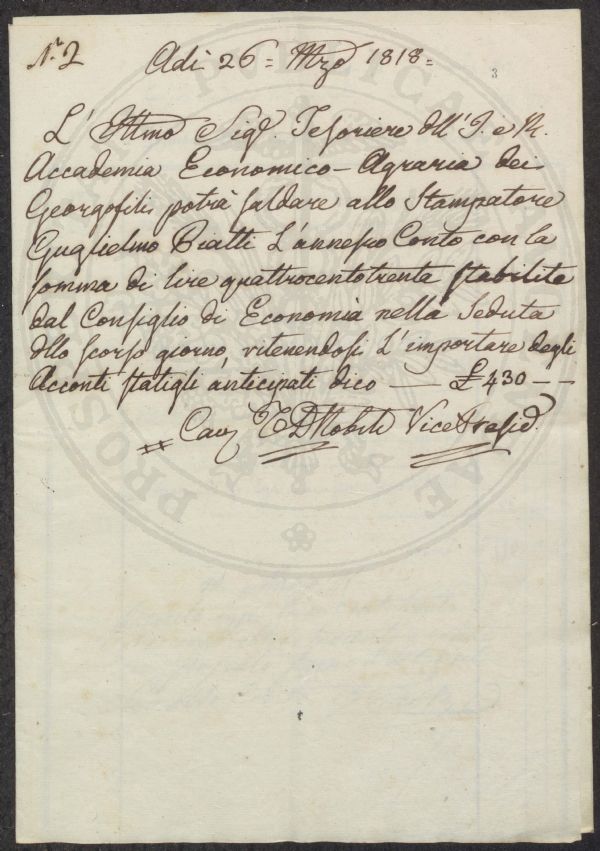 N.º 2 Adi 26 = Mzo 1818 =
3
L' Illmo Sigr. Tesoriere dell' I. e R.
Accademia Economico-Agraria dei
Georgofili potrà saldare allo Stampatore
Guglielmo Piatti L'annesso Conto con la
somma di lire quattrocentotrenta stabilita
dal Consiglio di Economia nella Seduta
dllo scorso giorno, ritenendosi L'importare degli
Acconti statigli anticipati dico — £ 430 —
Cav. T DNobili Vice Presid.
PUBLICAE
PROSPERITATI
AUGENDAE